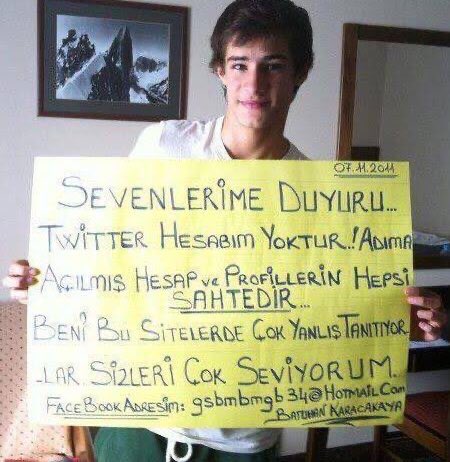 07.11.2011
SEVENLERİME DUYURU...
TWİTTER HESABIM YOKTUR..! ADIMA
AÇILMIŞ HESAP ve PROFİLLERİN HEPSİ
SAHTEDİR...
BENİ BU SİTELERDE ÇOK YANLIŞ TANITIYOR-
-LAR. SİZLERİ ÇOK SEVİYORUM..
FACEBOOK ADRESİM: gsbmbmgb34@HOTMAİL.Com
BATUHAN KARACAKAYA